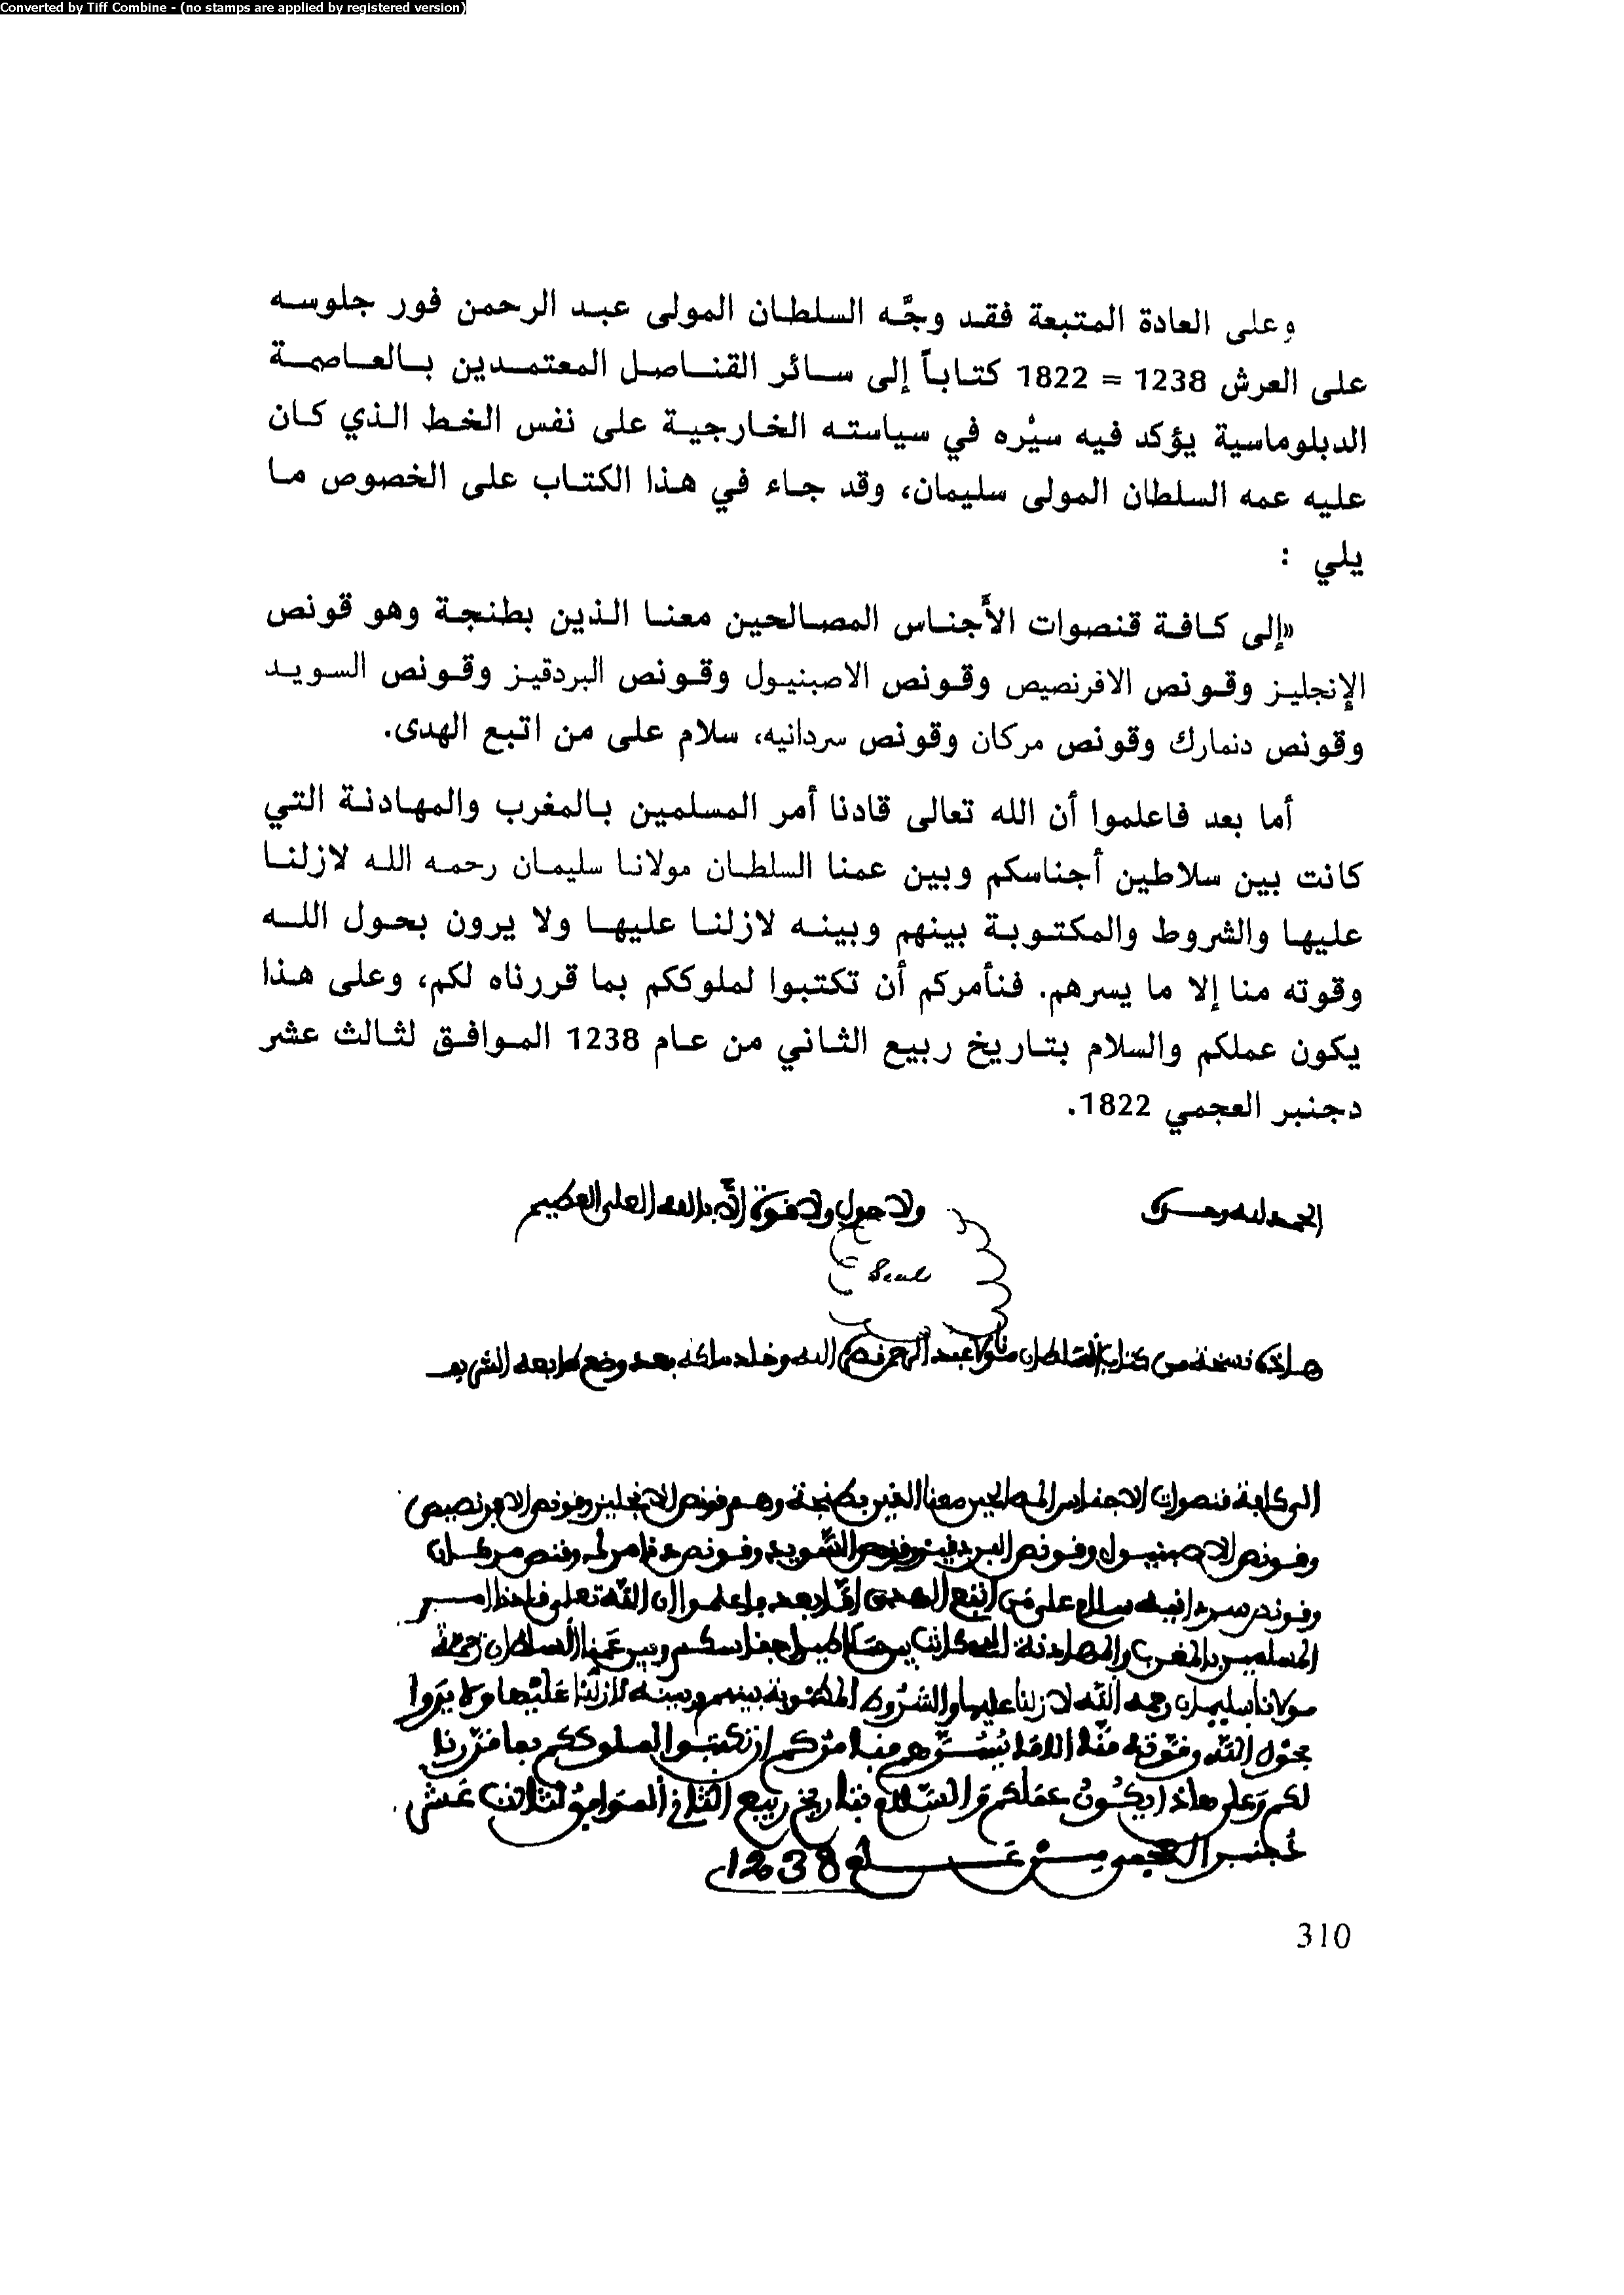 Converted by Tiff Combine - (no stamps are applied by registered version)
وعلى العادة المتبعة فقد وجَّه السلطان المولى عبد الرحمن فور جلوسه
على العرش 1238 = 1822 كتاباً إلى سائر القناصل المعتمدين بالعاصمة
الدبلوماسية يؤكد فيه سيْره في سياسته الخارجية على نفس الخط الذي كان
عليه عمه السلطان المولى سليمان، وقد جاء في هذا الكتاب على الخصوص ما
يلي :
«إلى كافة قنصوات الأجناس المصالحين معنا الذين بطنجة وهو قونص
الإنجليز وقونص الافرنصيص وقونص الاصبنيول وقونص البردقيز وقونص السويد
وقونص دنمارك وقونص مركان وقونص سردانيه، سلام على من اتبع الهدى.
أما بعد فاعلموا أن الله تعالى قادنا أمر المسلمين بالمغرب والمهادنة التي
كانت بين سلاطين أجناسكم وبين عمنا السلطان مولانا سليمان رحمه الله لازلنا
عليها والشروط والمكتوبة بينهم وبينه لازلنا عليها ولا يرون بحول الله
وقوته منا إلا ما يسرهم. فنأمركم أن تكتبوا لملوككم بما قررناه لكم، وعلى هذا
يكون عملكم والسلام بتاريخ ربيع الثاني من عام 1238 الموافق لثالث عشر
دجنبر العجمي 1822.
الحمد لله وحده
ولا حول ولا قوة إلا بالله العلي العظيم
Seal
هاذه نسخة من كتاب السلطان مولانا عبد الرحمن نصره الله وخلد ملكه بعد وضع طابعه الشريف
الى كافة قنصوات الاجناس المصالحين معنا الذين بطنجة وهم قونص الانجليز وقونص الافرنصيص
وقونص الاصبنيول وقونص البردقيز وقونص السويد وقونص دنامرك وقنص مركان
وقونص سردانيه سلام على من اتبع الهدى اما بعد فاعلموا ان الله تعلى
المسلمين بالمغرب والمهادنة التي كانت بين اجناسكم وبين عمنا السلطان
مولانا سليمان رحمه الله لازلنا عليها والشروط المكتوبة بينهم وبينه لازلنا عليها ولا يروا
بحول الله وقوته منا الا ما يسرهم فنامركم ان تكتبوا لملوككم بما قررنا
لكم وعلى هاذا يكون عملكم والسلام بتاريخ ربيع الثاني الموافق لثالث عشر
دجنبر العجمي من عام 1238
310